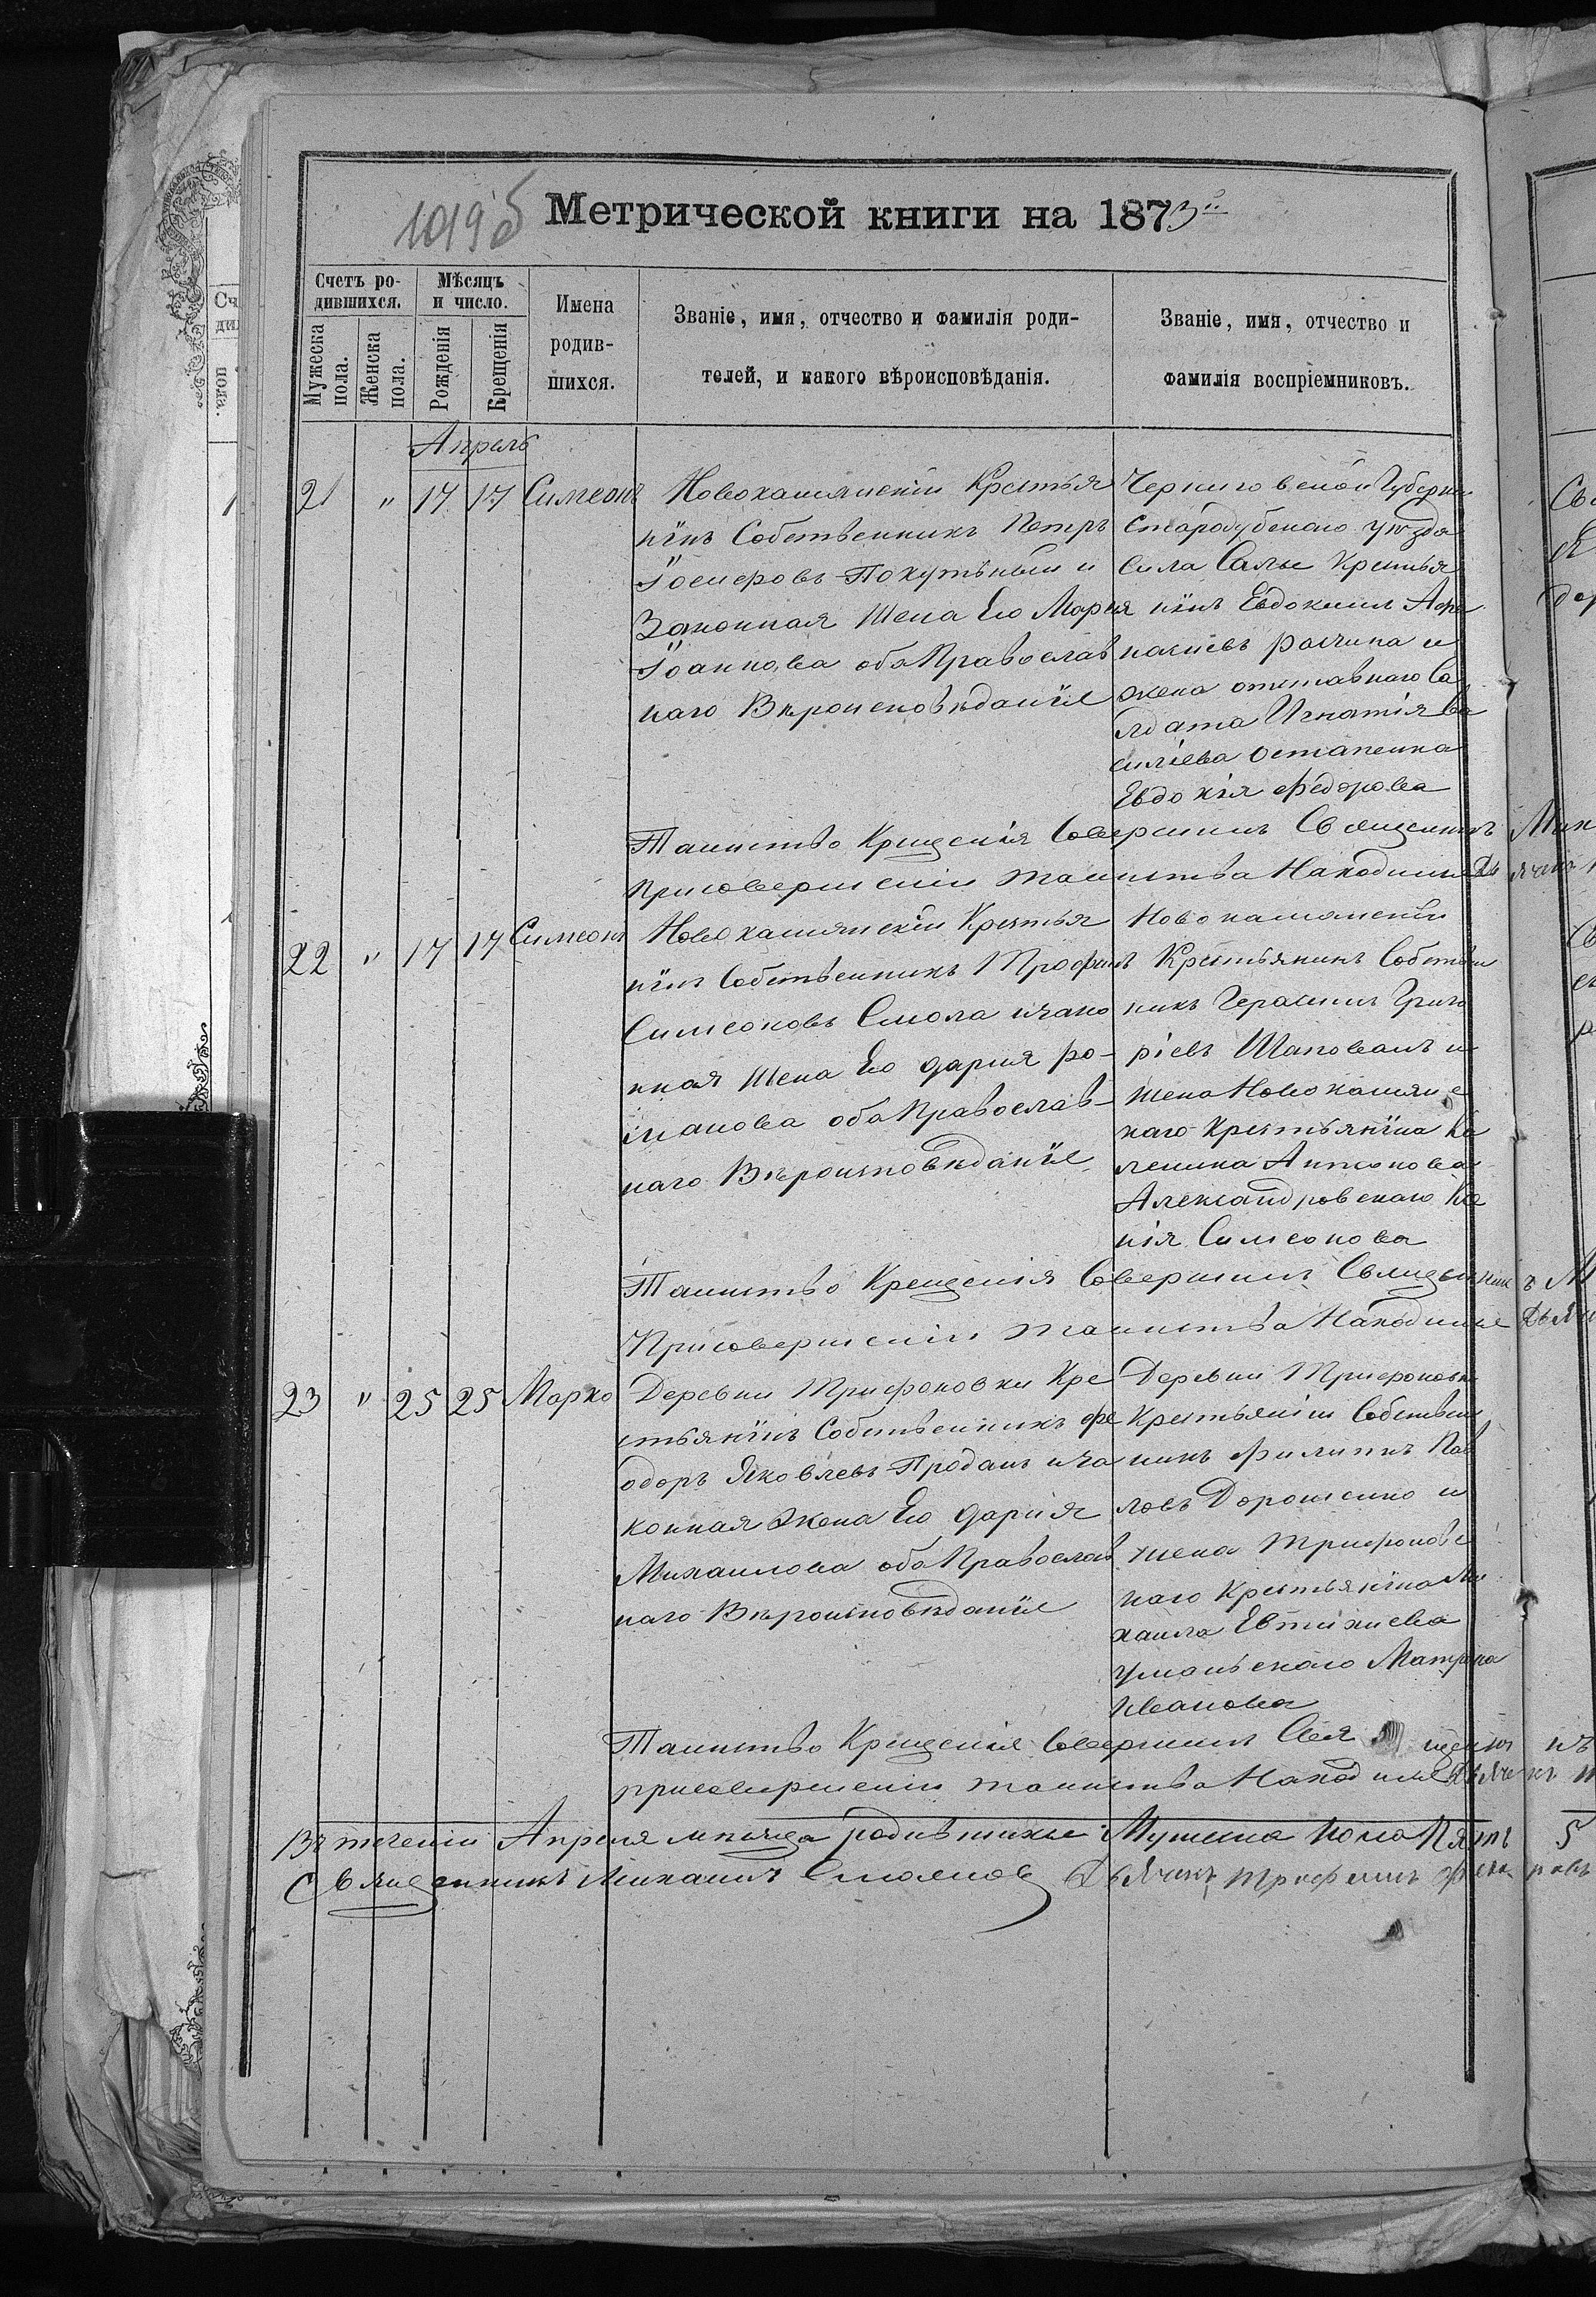 1019б Метрической книги на 1873й
Счетъ ро-
дившихся.
Мужеска пола.
Женска пола.
Мѣсяцъ
и число.
Рожденія
Крещенія
Имена
родив-
шихся.
Званіе, имя, отчество и фамилія роди-
телей, и какого вѣроисповѣданія.
Званіе, имя, отчество и
фамилія воспріемниковъ.
Апрель
21 " 17 17 Симеонъ
Новокамянскій Крестья
нинъ Собственникъ Петръ
Іосифовъ
Законная Жена Его Марья
Іоаннова оба Православ
наго Вѣроисповѣданія
Черниговской Губерніи
Стародубскаго уѣзда
села Крестья
нинъ Евдокимъ Афа
насіевъ и
жена отставнаго Со
лдата Игнатія Ва
силіева Остапенка
Евдокія Федорова
Таинство Крещенія Совершилъ Священникъ
Присовершеніи таинства Находился Дьячекъ
22 " 17 17 Симеонъ
Новокамянскій Крестья
нинъ Собственникъ Трофимъ
Симеоновъ Смола изако
нная Жена Его Дария Ро-
манова оба Православ-
наго Вѣроисповѣданія
Новокамянскій
Крестьянинъ Собствен
никъ Герасимъ Григо
ріевъ Шаповалъ и
жена Новокамянс
каго Крестьянина
Александровскаго
нія Симеонова
Таинство Крещенія Совершилъ Священникъ М
Присовершеніи таинства Находился Дьяч
23 " 25 25 Марко
Деревни Трифоновки Кре
стьянинъ Собственникъ Фе
одоръ Яковлевъ Проданъ иза
конная Жена Его Дария
Михаилова оба Православ
наго Вѣроисповѣданія
Деревни Трифоновки
Крестьянинъ Собствен
никъ Филиппъ Пав
ловъ Дорошенко и
жена Трифоновс
каго Крестьянина Ми
хаила Евтихиева
Уманьскаго Матрона
Иванова
Таинство Крещенія Совершилъ Свя щенни къ
присовершеніи таинства Находился Дьячекъ
Въ теченіи Апреля мѣсяца родившихся Мужеска пола Пять 5
Священникъ Михаилъ Дьячекъ Трофимъ